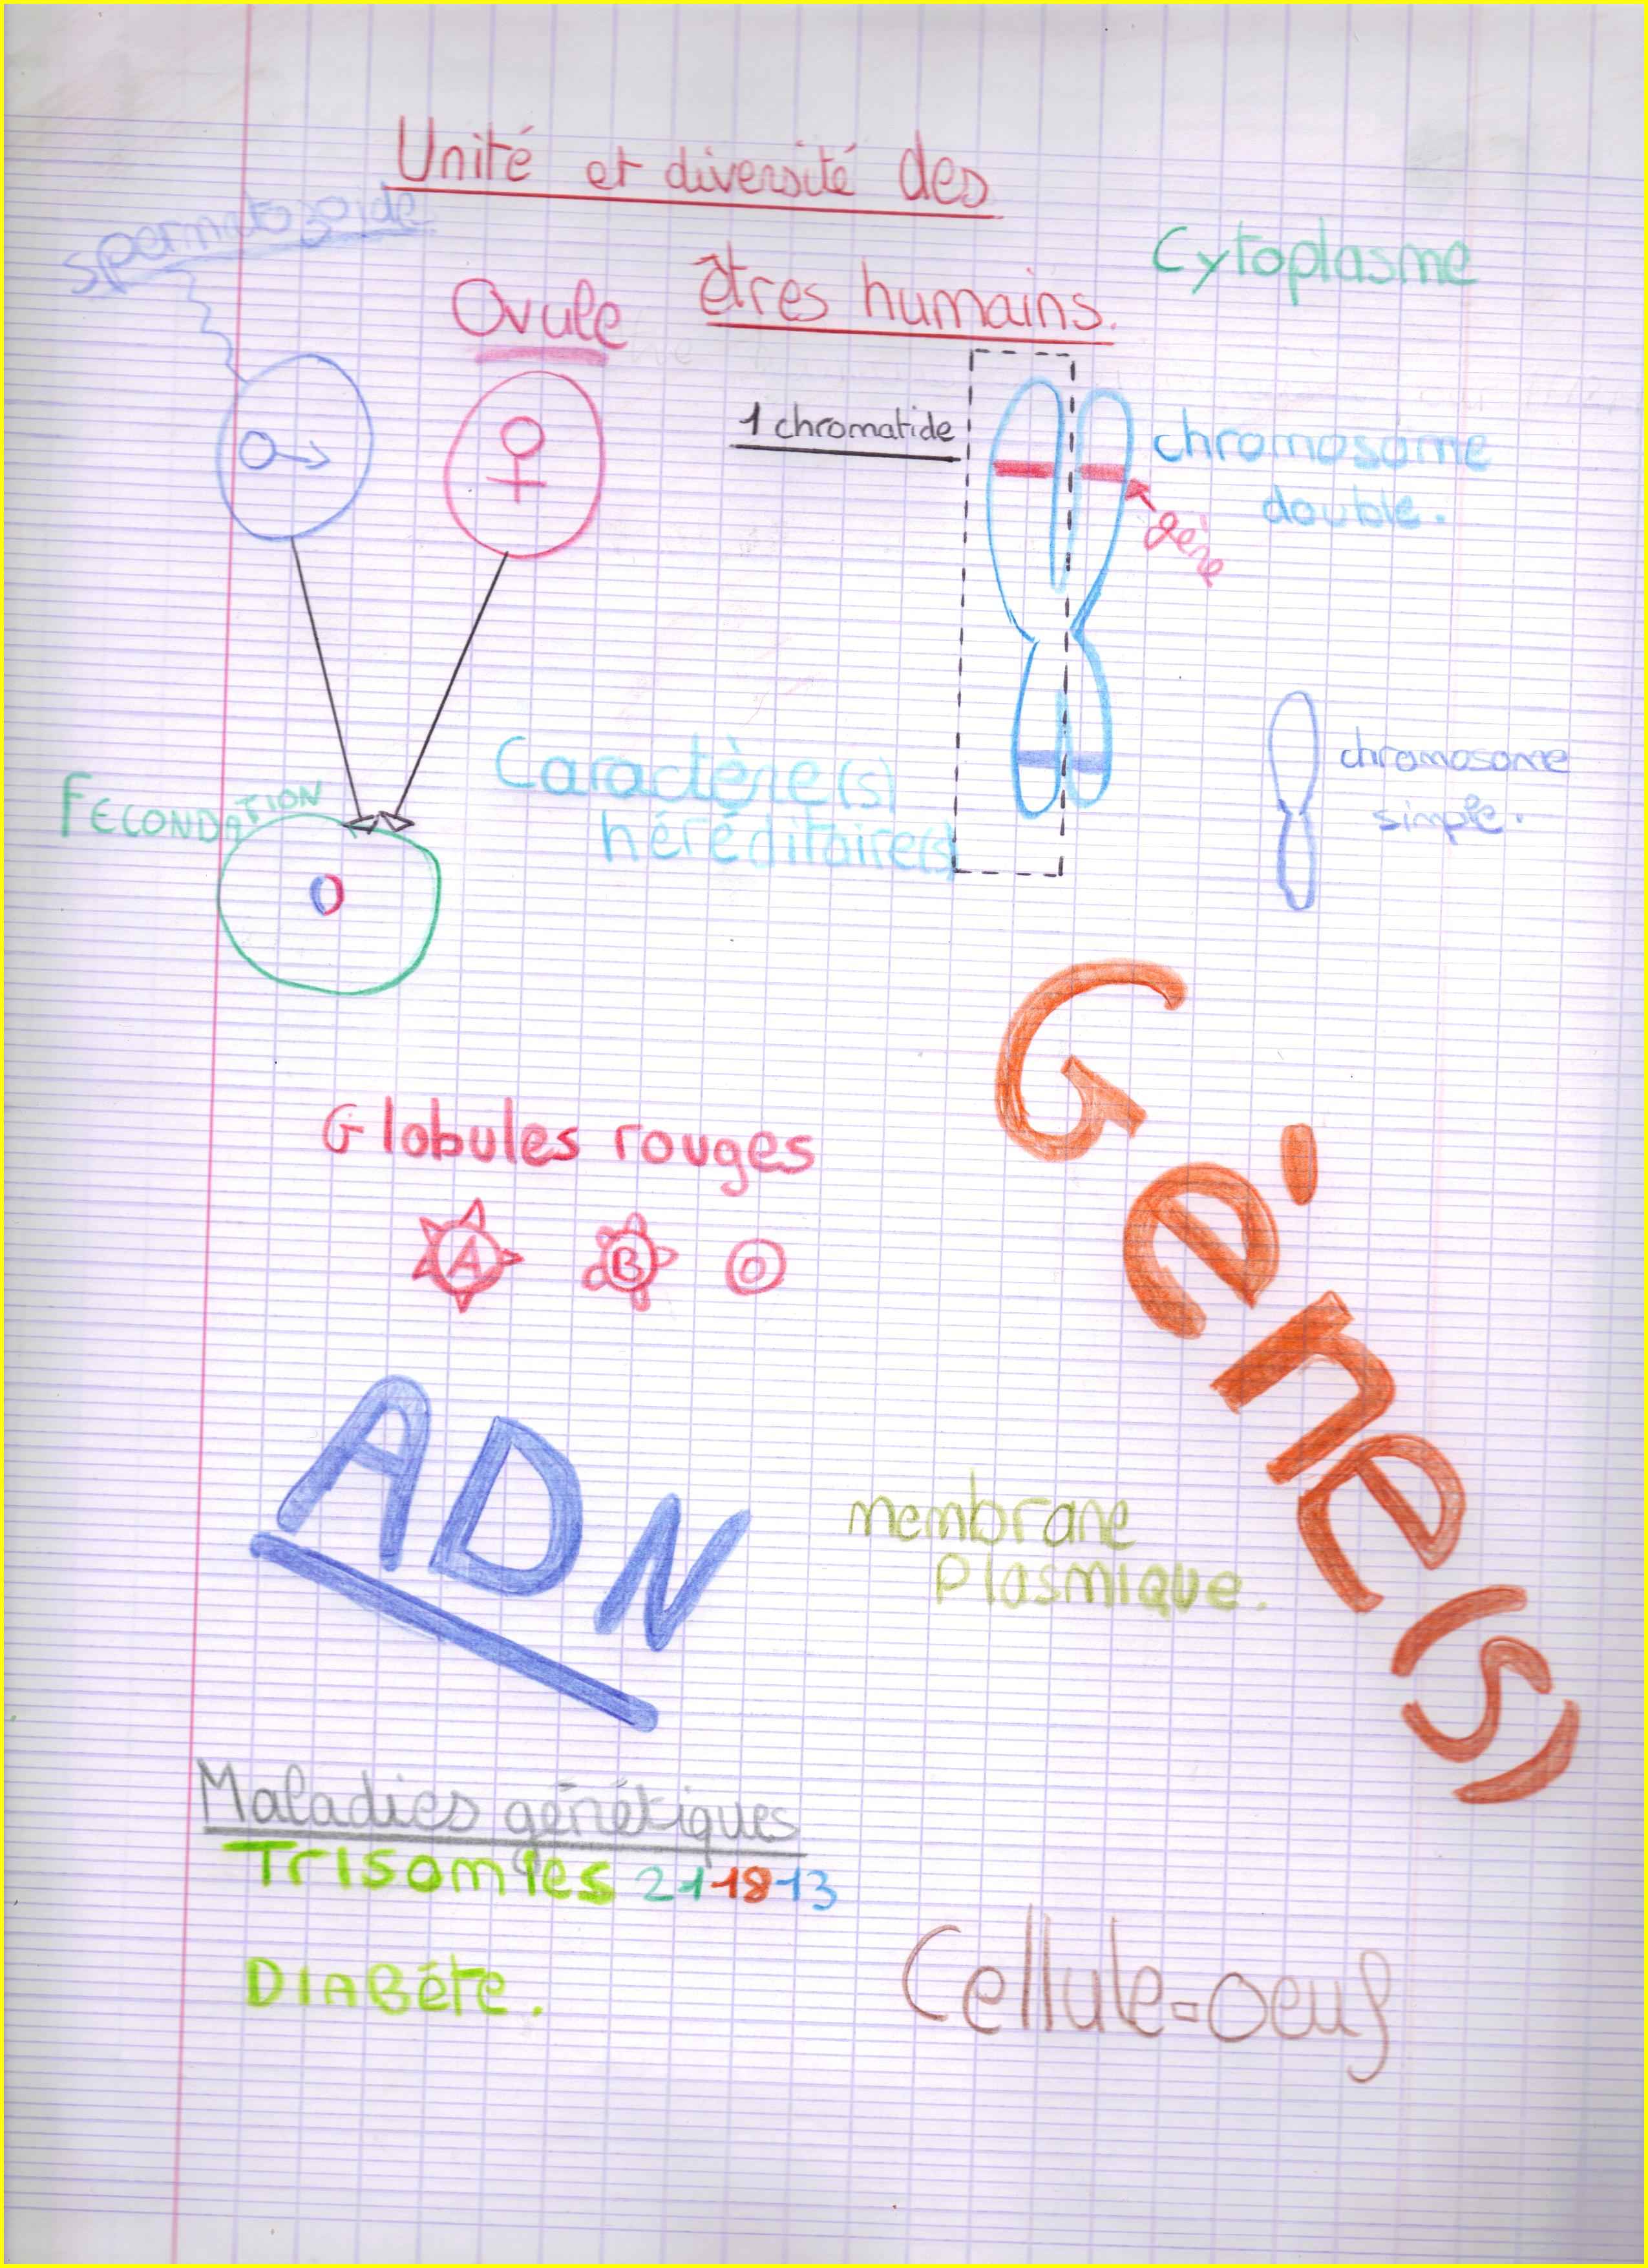 Unité et diversité des
êtres humains.
spermatozoide
Ovule
Cytoplasme
1 chromatide
chromosome
double.
gène
Caractère(s)
héréditaire(s)
chromosome
simple.
FECONDATION
Gène(s)
Globules rouges
A B O
ADN
membrane
Plasmique.
Maladies génétiques
Trisomies 21-18-13
DIABète.
Cellule-oeuf